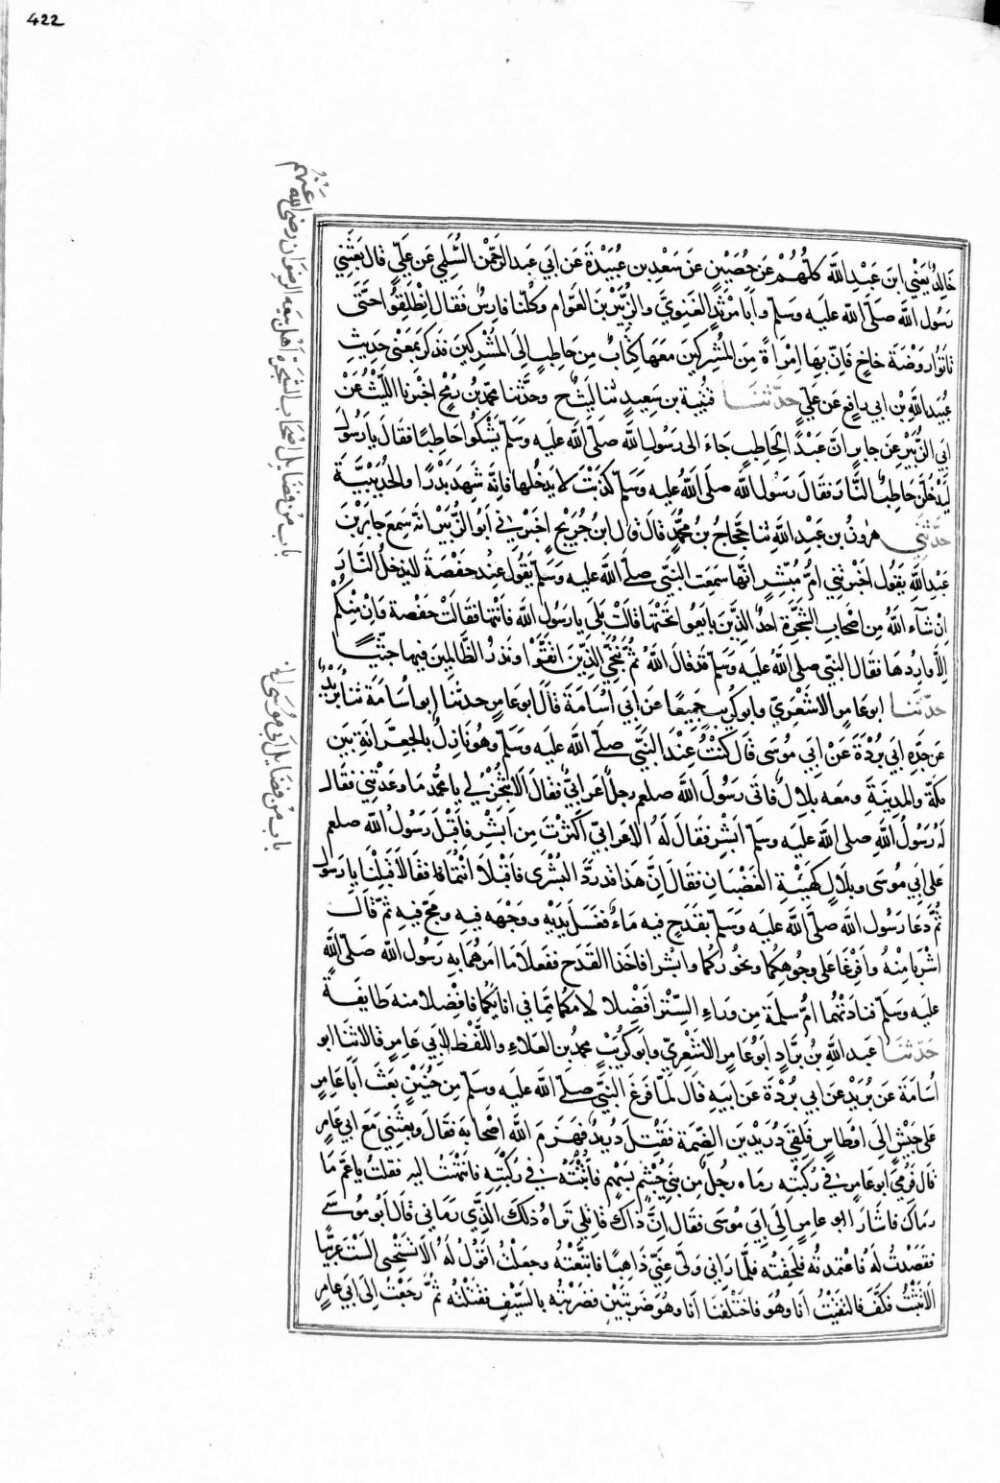 422
باب من فضايل اصحاب الشجرة اهل بيعة الرضوان رضى الله عنهم
خَالِدٌ يَعْنِي ابنَ عَبْدِ اللَّه كلُّهُمْ عَن حُصَيْنٍ عَن سَعْدِ بنِ عُبَيْدَةَ عَن ابي عبدِ الرَّحمٰنِ السُّلَمِي عَن عَلِيٍّ قال بَعَثَنِي
رسُول الله صلى الله عليه وسلم وابا مرْثدٍ الغَنوِيَّ والزُّبَيرَ بنَ العَوّام وكلّنا فارسٌ فقال انْطلِقُوا حتّى
تاتوا روضَة خاخٍ فاِنّ بِهَا امْرَاةً مِنَ المُشرِكينَ مَعَهَا كِتَابٌ مِن حَاطِبٍ اِلى المُشْرِكينَ فذكرَ بمَعْنى حَدِيثِ
عُبيدِ اللَّهِ بنِ ابي رافعٍ عن عَليٍّ حدّثنا قتيبة بن سَعِيدٍ ثنا ليث ح وحدّثنا محمّد بن رمحٍ اخبرنا الليْثُ عَنْ
ابي الزُّبَيْرِ عن جابرٍ انَّ عَبْدًا لِحَاطِبٍ جَاءَ الى رَسُولِ اللَّه صلّى اللَّه عليه وسلم يَشْكُوا حَاطِبًا فقال يا رسُول
ليَدْخُلنّ حَاطِبٌ النَّارَ فقال رسُول الله صلى الله عليه وسلم كذبْتَ لا يدخُلها فانّه شَهِدَ بَدْرًا والحُدَيْبِيَةَ
حدّثني هرُونُ بن عَبْدِ اللَّهِ ثنا حجّاجُ بن محمّدٍ قالَ قال ابنُ جُرَيْجٍ اخبَرَني اَبُو الزُّبَيْرِ انّه سَمِعَ جَابِرَ بْنَ
عَبْدِ اللَّهِ يَقُول اَخبَرَتْنِي امُّ مُبَشِّرٍ انَّها سَمِعَتِ النبيَّ صلّى اللَّه عليه وسلم يَقُول عِند حَفْصَةَ لا يدخلُ النَّارَ
اِنْ شآءَ اللَّهُ مِن اصْحَابِ الشجَرَةِ احدٌ الَّذِينَ بايَعُوا تحتَها قالَت بلَى يا رَسُول الله فانتهرَها فقَالَتْ حَفْصَة وَاِنْ مِنْكُمْ
اِلَّا وَارِدُهَا فقال النبيّ صلى الله عليه وسلم قد قال اللَّهُ ثُمَّ نُنَجِّي الَّذِينَ اتّقَوْا ونَذَرُ الظَّالِمِينَ فِيهَا جِثِيًّا
باب من فضايل ابي موسى
حدّثنا ابو عامرٍ الاشعَرِيّ وابو كُرَيْبٍ جَمِيعًا عَن اَبي اُسَامَةَ قالَ ابو عَامرٍ حدثنا ابو اُسَامَة ثنا بُرَيْدٌ
عَن جَدِّهِ اَبِي بُرْدَةَ عَنْ اَبِي مُوسَى قالَ كنْتُ عِنْدَ النَّبِيِّ صلّى الله عليه وسلم وهُوَ نَازِلٌ بالجِعِرَّانَةِ بَيْن
مَكّة والمدينَةِ ومعَه بِلالٌ فاتى رَسُولَ اللَّه صلعم رجلٌ اَعرابيٌّ فقالَ اَلا تُنْجِزُ لي يا مُحمّد ما وَعدْتني فقَال
لَهُ رَسُولُ اللهِ صلى الله عليه وسلم اَبْشِرْ فقالَ لَهُ الاعرابيّ اَكْثَرْتَ عليَّ مِن اَبْشِرْ فاَقبَلَ رسُولُ الله صلعم
على ابي مُوسَى وبلالٍ كهَيْئَةِ الغَضْبانِ فقال اِنَّ هذا قد رَدَّ البُشرَى فاقْبَلا انتُما فقالا قَبِلْنا يا رسُول
ثُمَّ دَعَا رَسُولُ اللَّه صلّى اللَّه عليه وسلم بقَدَحٍ فيه مَاءٌ فغَسَلَ يدَيْهِ ووَجْهَه فِيهِ ومَجَّ فِيهِ ثمّ قالَ
اشرَبا مِنْهُ وافْرِغا على وجُوهِكُما ونحُورِكُما وابشِرا فاخذا القَدَح ففعَلا ما امرهُمَا بِهِ رَسُول الله صلّى الله
عليه وسلم فنادَتْهُما امُّ سلمَة مِن وَرَاءِ السِّتْرِ افْضِلا لِاُمِّكُمَا ممّا في انائكُما فافْضلا منه طايفَةً
حدّثنا عبدُ اللَّه بن بَرّادٍ ابو عَامِرٍ الاشعَرِيّ وابُو كُرَيْبٍ محمدُ بن العَلاءِ واللَّفظ لابي عَامِرٍ قالا ثنا ابو
اُسَامَةَ عَن بُرَيْدٍ عَن ابي بُرْدَةَ عَن ابيه قالَ لمّا فرَغَ النبيّ صلى الله عليه وسلم مِن حُنَيْنٍ بعَثَ اَبَا عَامِرٍ
على جَيْشٍ اِلى اوطاسٍ فلقِي دُرَيْدَ بنَ الصِّمَّة فقُتِلَ دُرَيدٌ وهَزَمَ اللَّه اصْحَابه فقالَ وبعَثَنِي مَعَ ابي عَامِرٍ
قالَ فرُمِيَ ابو عَامرٍ في رُكبَتِه رماه رجُلٌ مِن بَنِي جُشَمٍ بسَهْمٍ فاثْبَتَهُ في رُكبَتِهِ فانْتَهَيْتُ اليهِ فقلتُ يا عَمِّ مَا
رماكَ فاشَارَ ابو عامرٍ اِلى اَبِي مُوسَى فقال اِنَّ ذاكَ قاتِلِي تراهُ ذلكَ الّذي رَمَاني قال ابُو مُوسَى
فقصَدْتُ لهُ فاعْتمدتُه فلَحِقتُه فلمّا رَانِي ولّى عَنِّي ذاهِبًا فاتَّبَعْتُهُ وجعلْتُ اقولُ لهُ اَلا تَسْتَحْيِي الَسْتَ عربِيًّا
اَلا تَثبُتُ فكَفَّ فالتقَيْتُ انا وهُوَ فاختَلَفْنا انا وهُوَ ضَربَتَيْنِ فضَرَبْتُهُ بالسَّيْفِ فقَتَلْتُه ثُمَّ رجَعْتُ اِلى اَبي عَامِرٍ